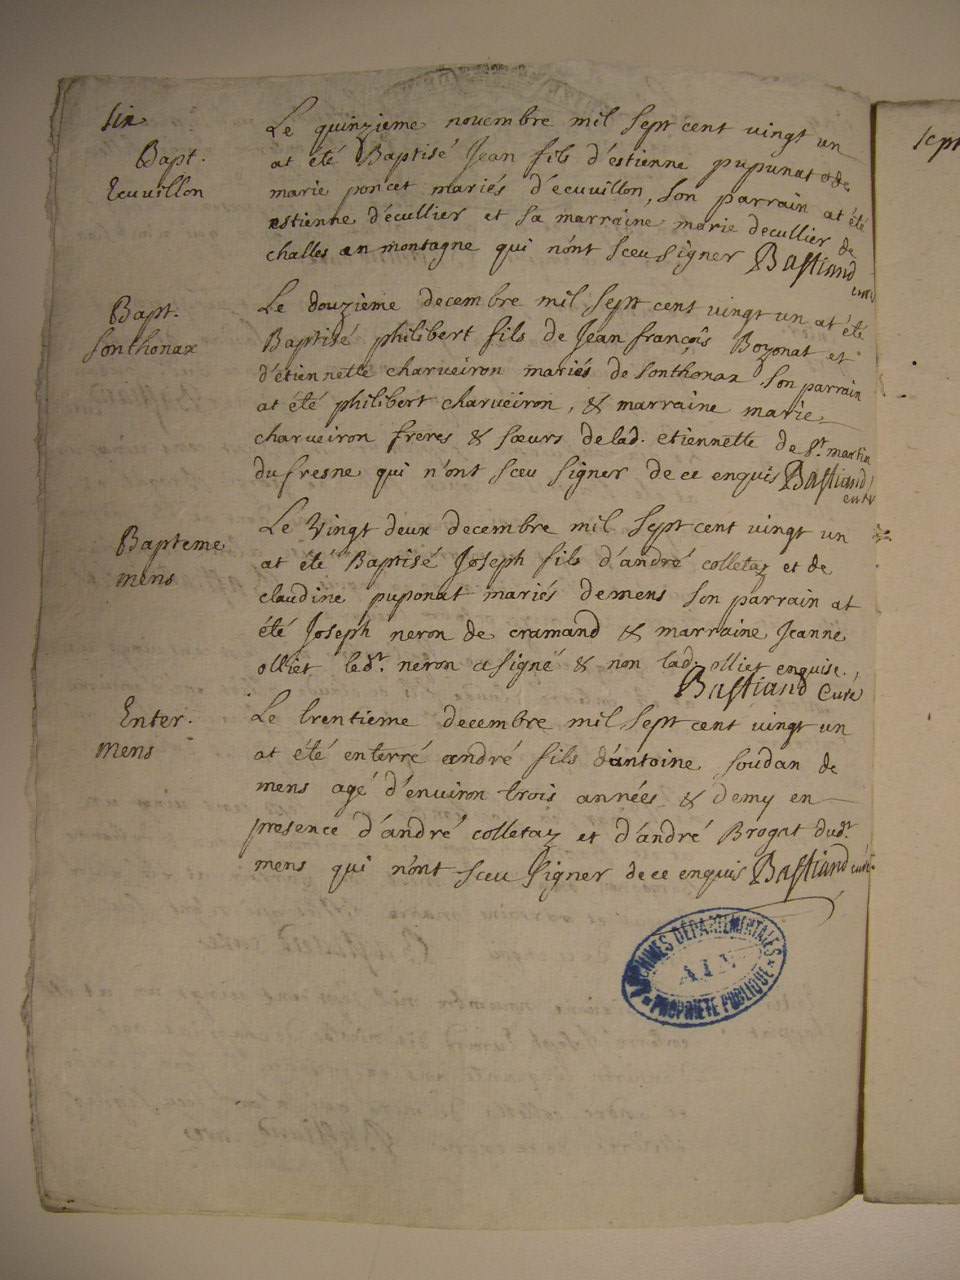 six
Bapt.
Ecuvillon
Le quinzieme novembre mil sept cent vingt un
at été Baptisé Jean fils d'estienne pupunat et de
marie poncet mariés d'ecuvillon, son parrain at été
estienne d'écullier et sa marraine marie decullier de
challes en montagne qui n'ont sceu signer Bastiand
curé
Bapt.
Sonthonax
Le douzième decembre mil sept cent vingt un at été
Baptisé philibert fils de Jean françois Bozonat et
d'étiennette charveiron mariés de sonthonax son parrain
at été philibert charveiron, & marraine marie
charveiron freres & sœurs de lad. etiennette de st. martin
du fresne qui n'ont sceu signer de ce enquis Bastiand
curé
Bapteme
mens
Le vingt deux decembre mil sept cent vingt un
at été Baptisé Joseph fils d'andré colletaz et de
claudine puponat mariés de mens son parrain at
été Joseph neron de cramand & marraine Jeanne
olliet led.t neron a signé & non lad. olliet enquise.
Bastiand Curé
Enter.
Mens
Le trentieme decembre mil sept cent vingt un
at été enterré andré fils d'antoine soudan de
mens agé d'environ trois années & demy en
presence d'andré colletaz et d'andré Brogat dud.t
mens qui n'ont sceu signer de ce enquis Bastiand curé
ARCHIVES DÉPARTEMENTALES
AIN
PROPRIÉTÉ PUBLIQUE